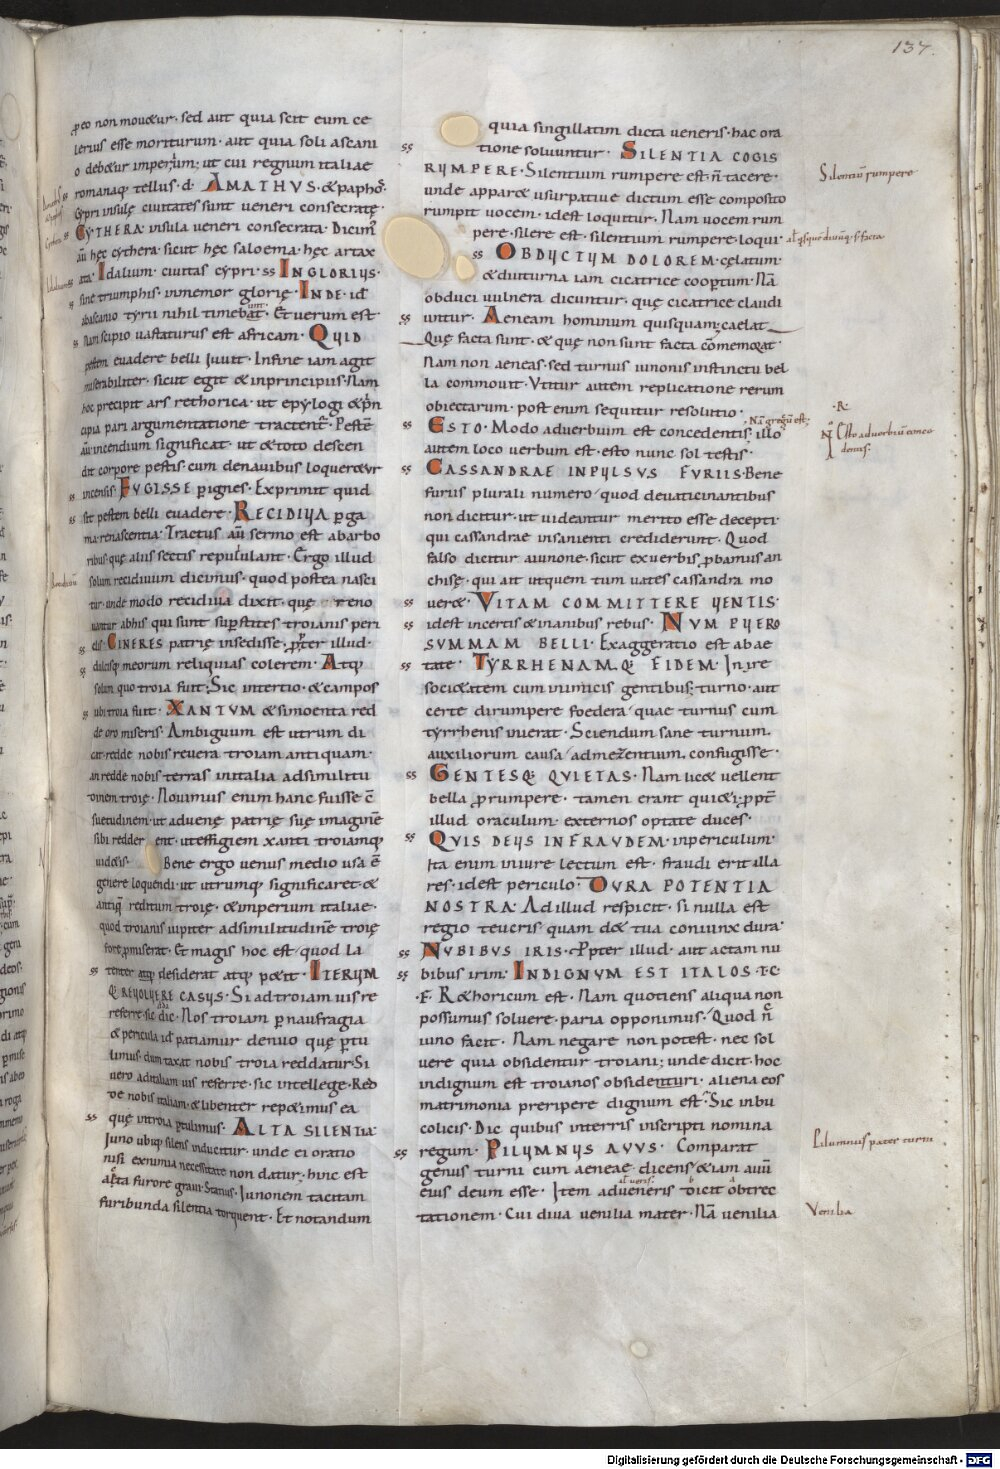 137.
ꝑeo non mouetur· sed aut quia scit eum ce
lerius esse moriturum· aut quia soli ascani
o debetur imperium; ut cui regnum italiae
romanaq; tellus· d· AMATHVS· & paphos·
Cypri insulę ciuitates sunt ueneri consecratę·
CYTHERA· insula ueneri consecrata· Dicim᷒
aū hęc cythera· sicut hęc saloema· hęc artax
ata· Idalium· ciuitas cypri· ss INGLORIVS·
sine triumphis· inmemor glorię· INDE· id
abascanio tyrii nihil timebat· Et uerum est·
Nam scipio uastaturus est africam· QVID
pestem euadere belli iuuit· In fine iam agit
miserabiliter· sicut egit & inprincipiis· Nam
hoc precipit ars rethorica· ut epylogi & prin
cipia pari argumentatione tractent᷒· Pestē
aū incendium significat· ut & toto descen
dit corpore pestis· cum denauibus loqueretur
incensis· FVGISSE ꝑignes· Exprimit quid
sit pestem belli euadere· RECIDIVA ꝑga
ma· renascentia· Tractus aū sermo est abarbo
ribus· quę aliis sectis repullulant· Ergo illud
solum recidiuum dicimus· quod postea nasci
tur· unde modo recidiua dixit· quę reno
uantur abhis qui sunt suꝑstites troianis peri
dis· CINERES patrię insedisse· ꝓpter illud·
dulcisq; meorum reliquias colerem· Atq;
solum quo troia fuit; Sic intertio· & campos
ubi troia fuit· XANTVM & simoenta red
de oro miseris· Ambiguum est utrum di
cat· redde nobis reuera troiam antiquam·
an redde nobis terras initalia adsimilitu
dinem troię· Nouimus enim hanc fuisse c̄
suetudinem· ut aduenę patrię suę imaginē
sibi redderent· uteffigiem xanti troiamq;
uidetis· Bene ergo uenus medio usa ē
genere loquendi· ut utrumq; significaret· &
antiquū reditum troię· & imperium italiae·
quod troianis iupiter adsimilitudinē troię
fore ꝓmiserat· Et magis hoc est quod La
tenter atq; desiderat atq; petit· ITERVM
Q; REVOLVERE CASVS· Si ad troiam uis re
referre· sic dic· Nos troiam ꝑ naufragia
& pericula id patiamur denuo quę ꝑtu
limus· dum taxat nobis troia reddatur· Si
uero aditaliam uis referre· sic intellege· Red
de nobis italiam· & libenter repetimus ea
quę introia ꝑtulimus· ALTA SILENTIA·
Iuno ubiq; silens inducitur· unde ei oratio
nisi ex nimia necessitate non datur; hinc est
acta furore graui· Statius· Iunonem tacitam
furibunda silentia torquent· Et notandum
quia singillatim dicta ueneris· hac ora
tione soluuntur· SILENTIA COGIS
RVMPERE· Silentium rumpere est· n̄ tacere·
unde apparet usurpatiue dictum esse composito
rumpit uocem· idest loquitur· Nam uocem rum
pere· silere est· silentium rumpere· loqui·
OBDVCTVM DOLOREM· cęlatum·
& diuturna iam cicatrice cooptum· Nā
obduci uulnera dicuntur· quę cicatrice claudi
untur· Aeneam hominum quisquam; caelat
Quę facta sunt· & quę non sunt facta cōmemorat·
Nam non aeneas· sed turnus iunonis instinctu bel
la commouit· Vtitur autem replicatione rerum
obiectarum· post enim sequitur resolutio·
ESTO· Modo aduerbium est concedentis; illo
autem loco uerbum est· esto nunc sol testis·
CASSANDRAE INPVLSVS FVRIIS· Bene
furiis plurali numero· quod deuaticinantibus
non dicitur· ut uideantur merito esse decepti·
qui cassandrae insanienti crediderunt· Quod
falso dicitur aiunone· sicut exuerbis ꝓbamus an
chisę· qui ait utquem tum uates cassandra mo
ueret· VITAM COMMITTERE VENTIS·
idest incertis & inanibus rebus· NVM PVERO
SVMMAM BELLI· Exaggeratio est abae
tate· TYRRHENAMQ; FIDEM· Inire
societatem cum inimicis gentibus; turno· aut
certe dirumpere foedera· quae turnus cum
tyrrhenis inierat· Sciendum sane turnum·
auxiliorum causa· admezentium· confugisse·
GENTESQ; QVIETAS· Nam licet uellent
bella ꝓrumpere· tamen erant quieti; ꝓpt̄
illud oraculum· externos optate duces·
QVIS DEVS IN FRAVDEM· inpericulum·
Ita enim iniure lectum est· fraudi erit illa
res· idest periculo· DVRA POTENTIA
NOSTRA· Ad illud respicit· si nulla est
regio teucris quam det tua coniunx dura·
NVBIBVS IRIS· Ppter illud· aut actam nu
bibus irim· INDIGNVM EST ITALOS· T· C·
·F· Rethoricum est· Nam quotiens aliqua non
possumus soluere· paria opponimus· Quod nc̄
iuno facit· Nam negare non potest· nec sol
uere quia obsidentur troiani; unde dicit· hoc
indignum est troianos obsidentur; aliena eos
matrimonia preripere dignum est· Sic inbu
colicis· Dic quibus interris inscripti nomina
regum· PILVMNVS AVVS· Comparat
genus turni cum aeneae· dicens etiam auū
eius deum esse· Item adueneris dicit obtrec
tationem· Cui diua uenilia mater· Nā uenilia
Silentiū rumpere
·R·
Esto aduerbiū conce
dentis·
Pilumnus pater turni
Venilia
Digitalisierung gefördert durch die Deutsche Forschungsgemeinschaft - DFG